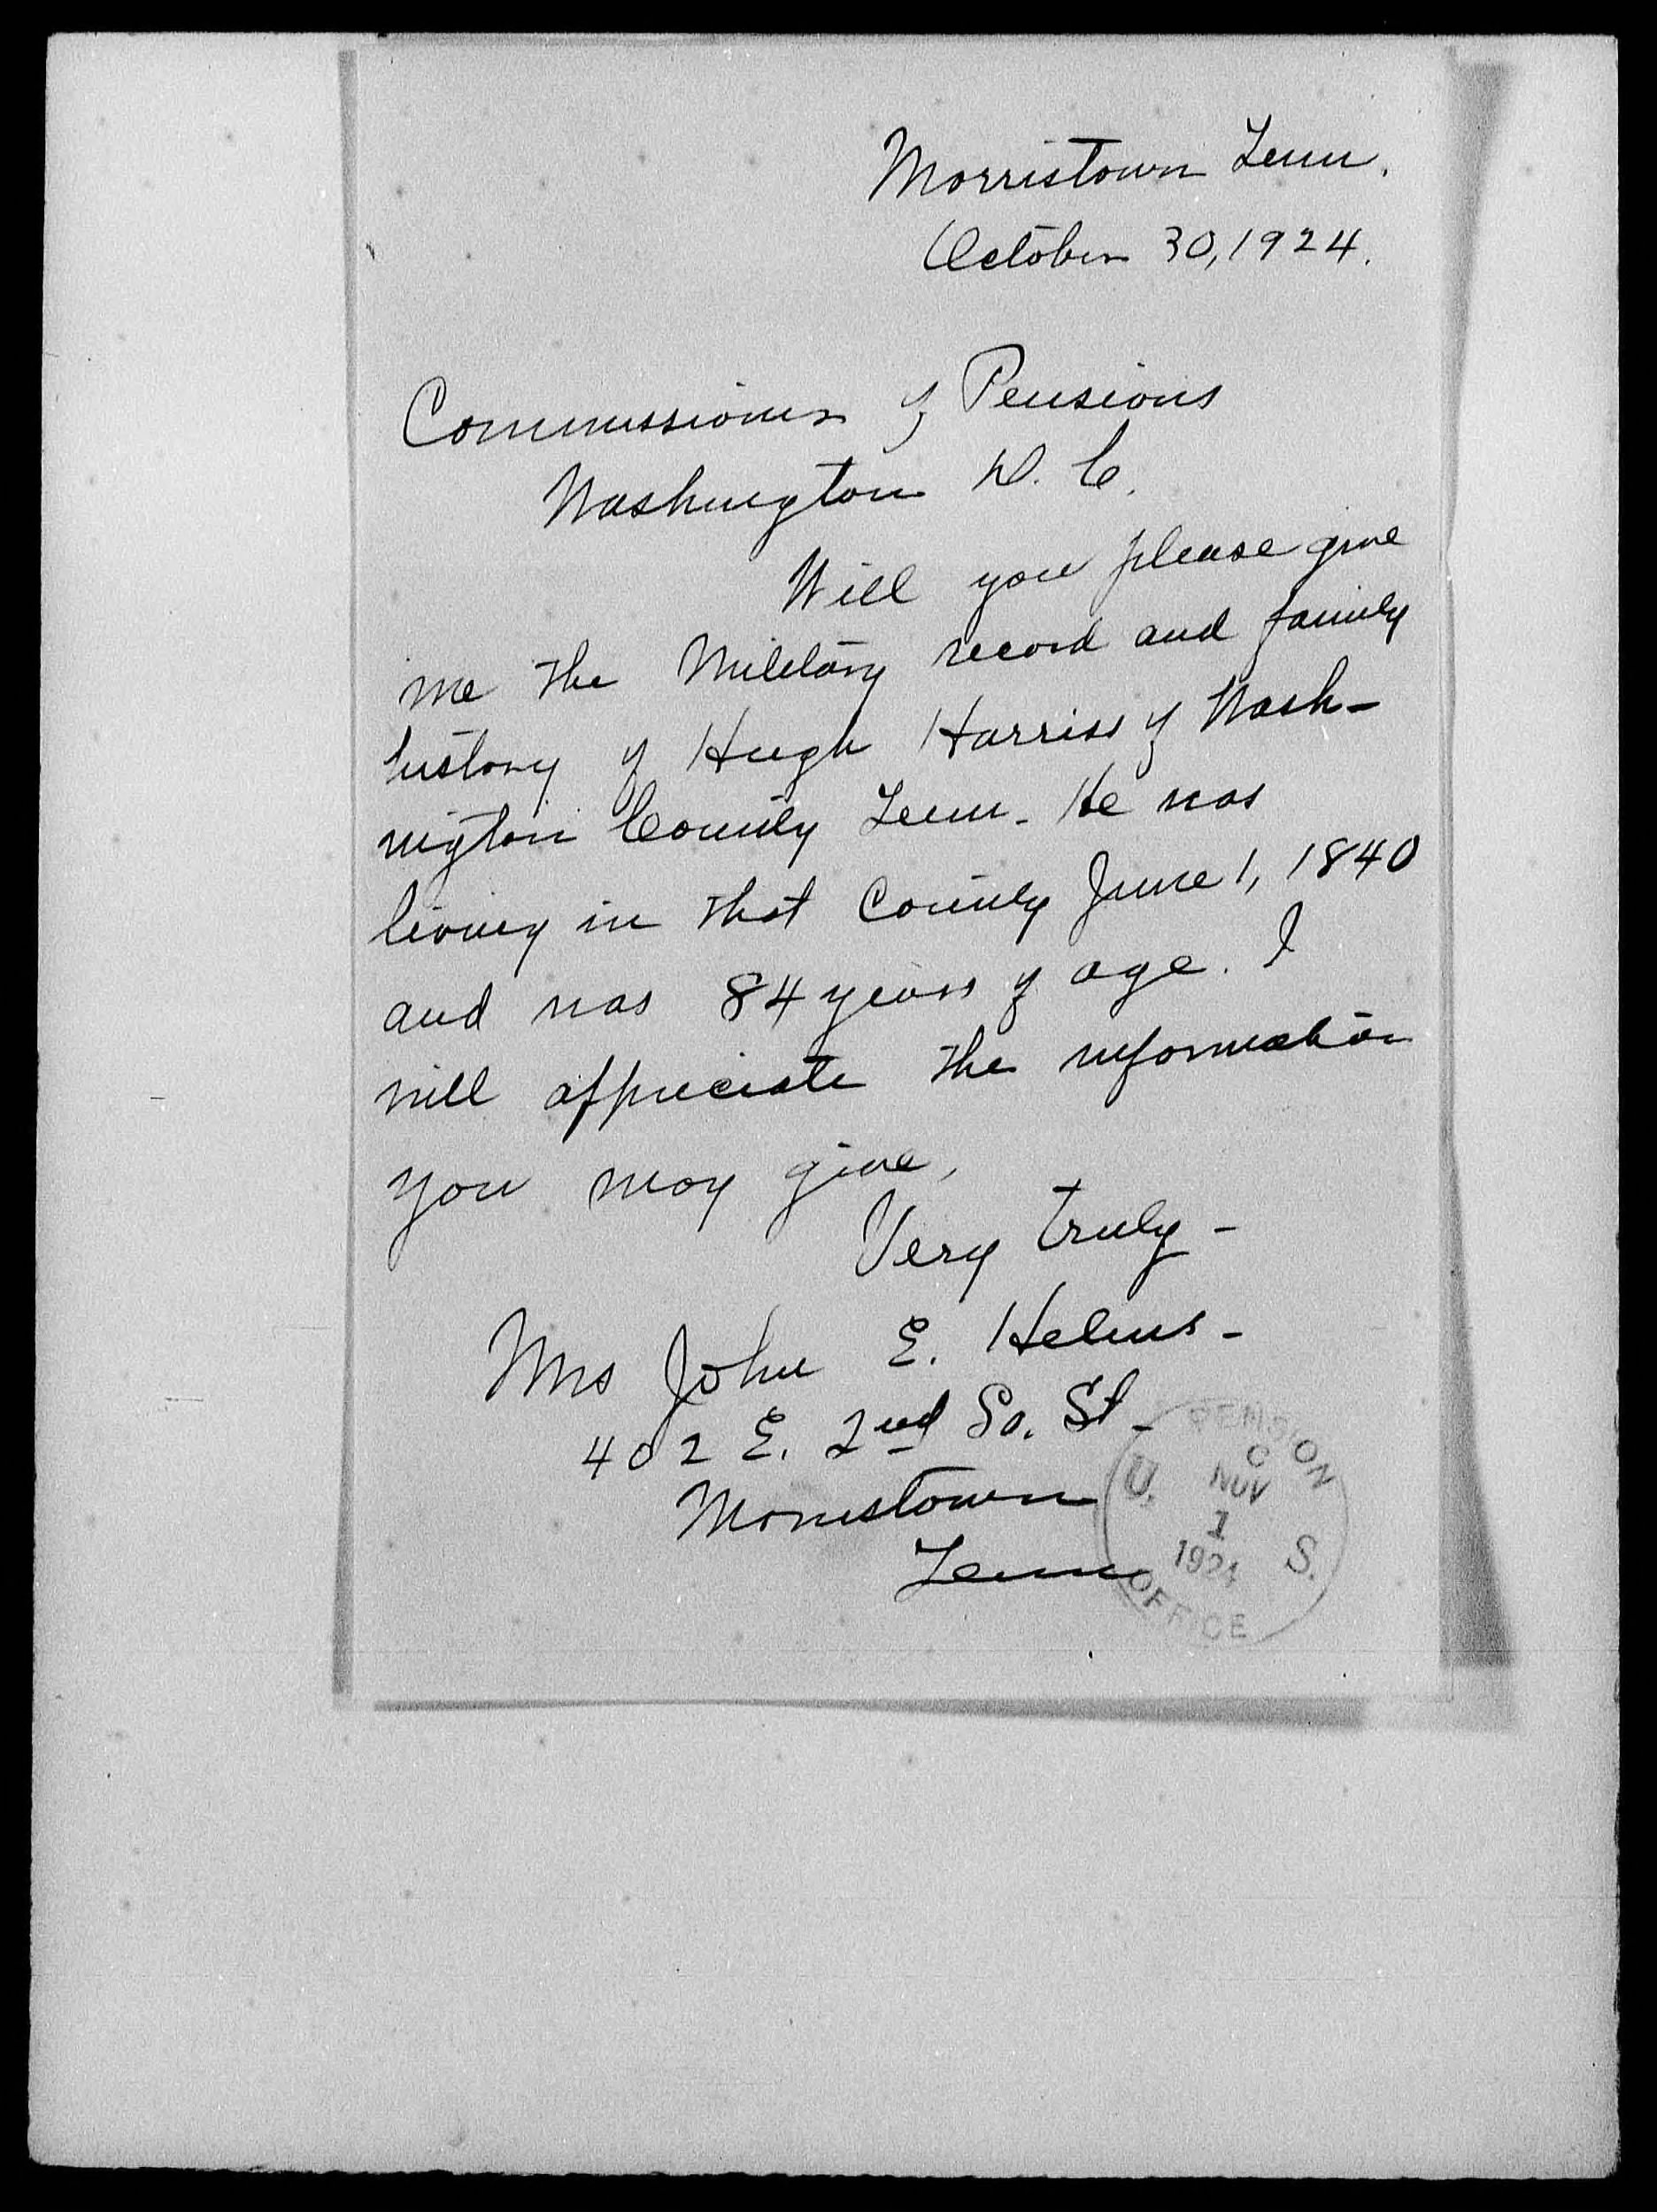 Morristown Tenn.
October 30, 1924.
Commissioner of Pensions
Washington D. C.
Will you please give
me the Military record and family
history of Hugh Harriss of Wash-
ington County Tenn. He was
living in that County June 1, 1840
and was 84 years of age. I
will appreciate the information
you may give,
Very truly -
Mrs John E. Helms -
402 E. 2nd So. St -
Morristown
Tenn
U. S. PENSION OFFICE
NOV
1
1924